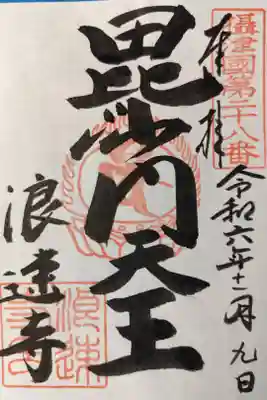 攝津國第二十八番
奉拝
令和六年十二月九日
毘沙門天王
浪速寺